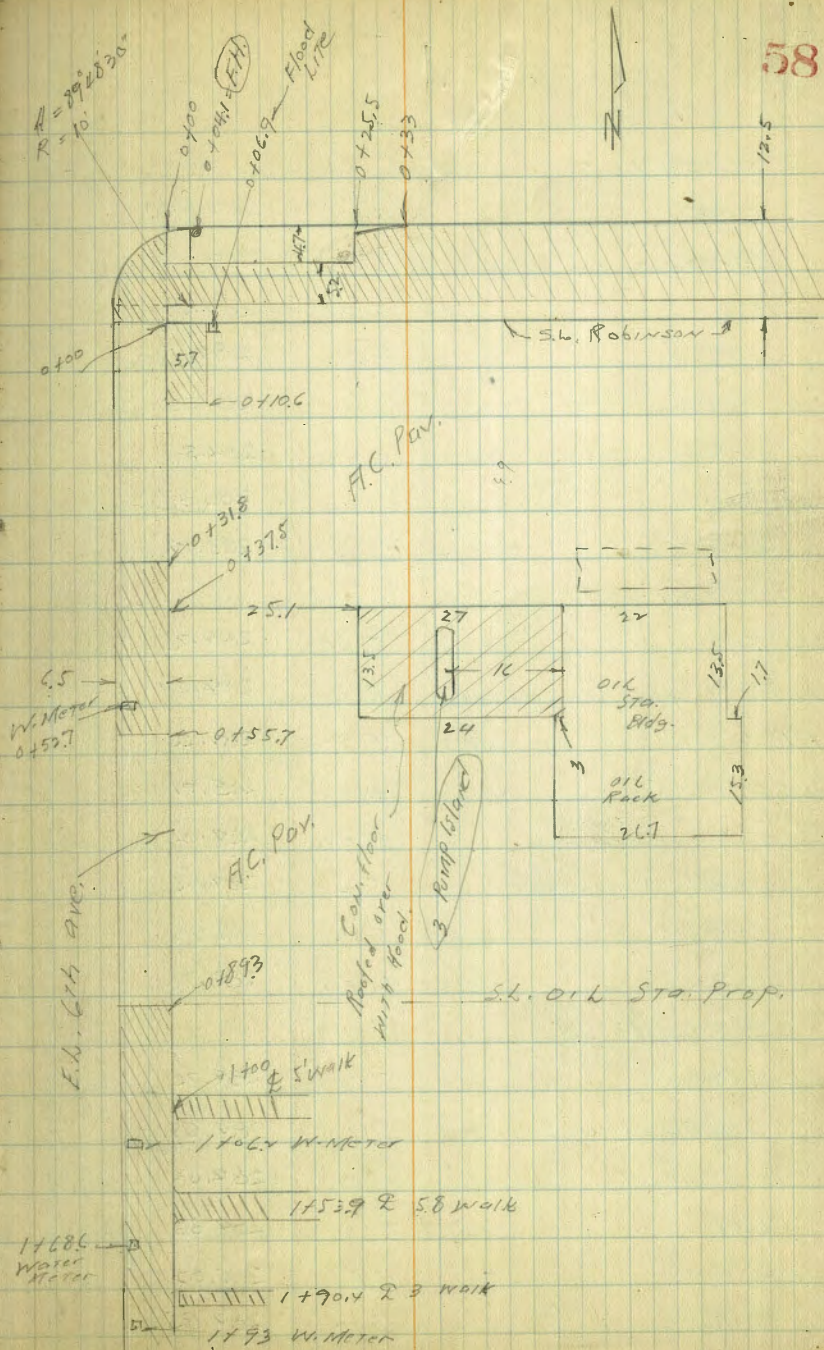 58
Δ = 89°48'30"
R = 10'
0+00
0+04.1 = F.H.
0+06.9 Flood
LITE
0+25.5
0+33
N
12.5
4.7
5.2
S.L. Robinson
0+00
5.7
0+10.6
A.C. Pav.
0+31.8
0+37.5
25.1
27
22
13.5
16
13.5
1.7
OIL
STA.
Bldg.
6.5
W. Meter
0+52.7
0+55.7
24
3
OIL
Rack
15.3
26.7
A.C. Pav.
E.L. 6th Ave.
Con. Floor
Roofed over
with Hood
3 Pump Island
0+89.3
S.L. OIL STA. Prop.
1+00 ℄ 5' Walk
1+06.2 W. Meter
1+53.9 ℄ 5.8 Walk
1+68.6
Water
Meter
1+90.4 ℄ 3 Walk
1+93 W. Meter